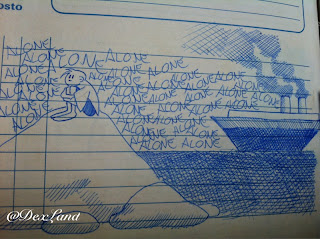 osto
ALONE
ALONE ALONE ALONE
ALONE ALONE ALONE
ALONE ALONE ALONE ALONE
ALONE ALONE ALONE ALONE ALONE
ALONE ALONE ALONE ALONE ALONE
ALONE ALONE ALONE ALONE
ALONE ALONE
ALONE ALONE
ALONE ALONE
@DexLand